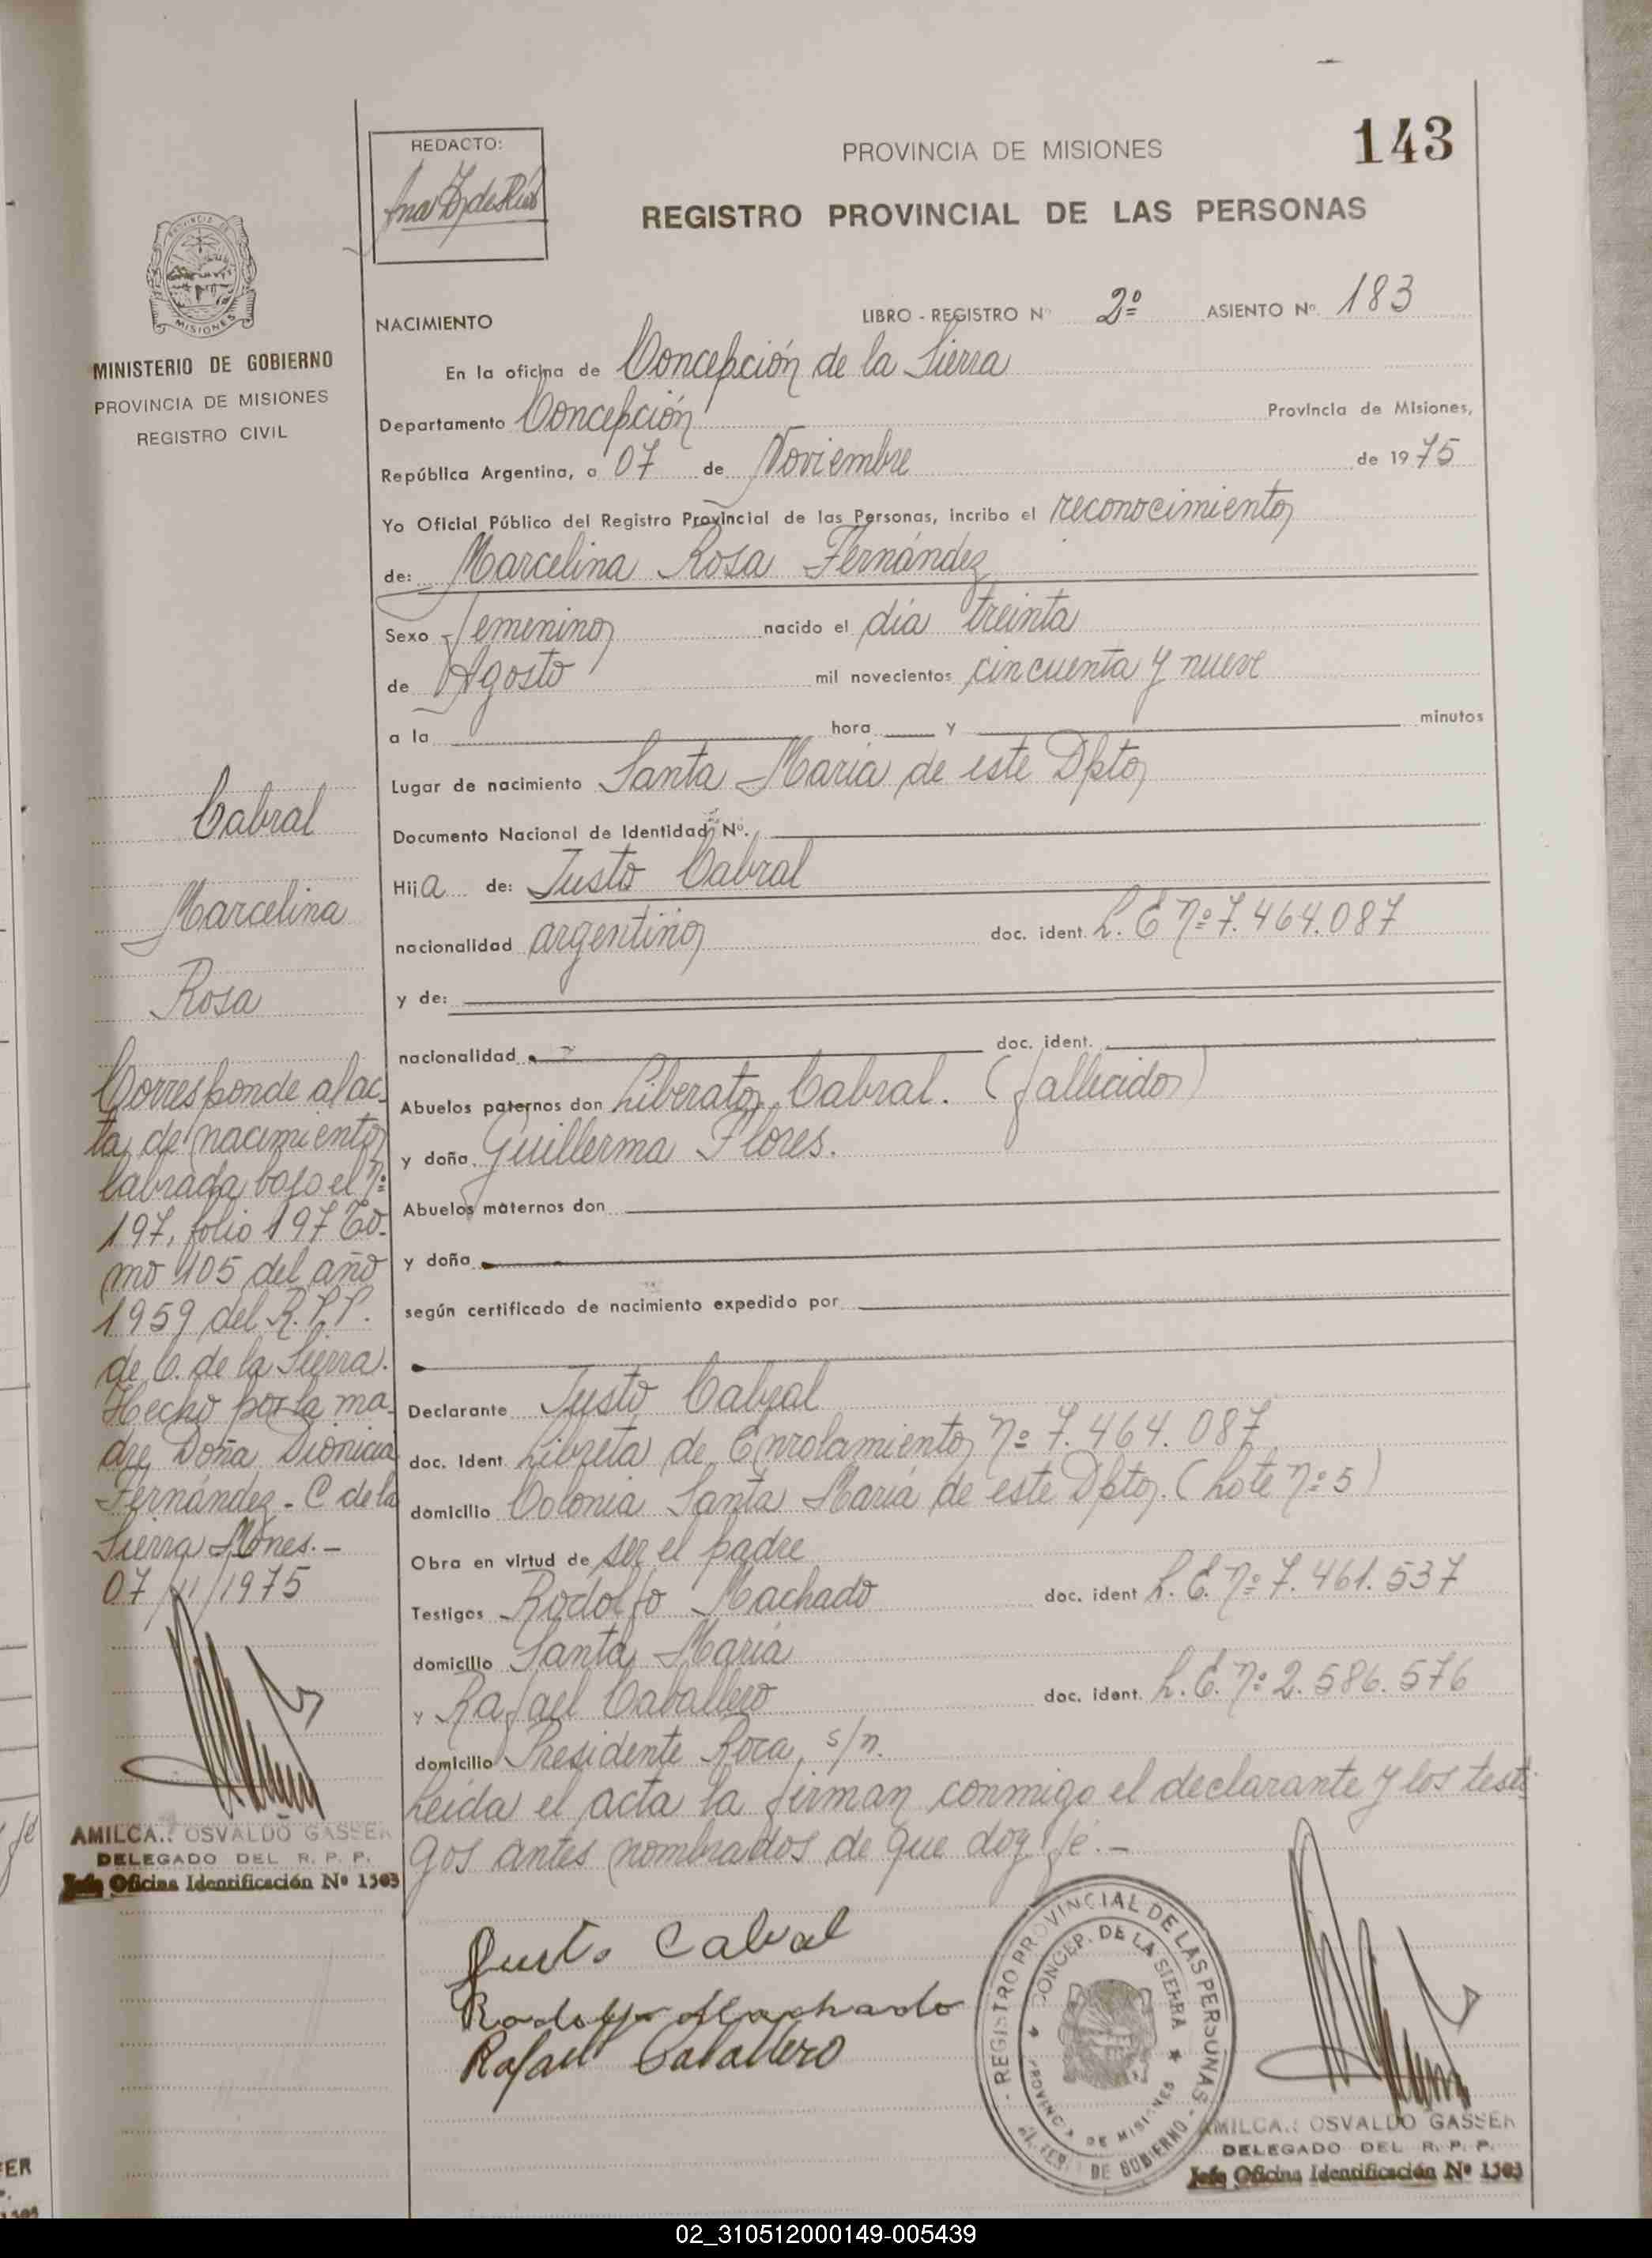 143
REDACTO:
PROVINCIA DE MISIONES
REGISTRO PROVINCIAL DE LAS PERSONAS
PROVINCIA
MISIONES
MINISTERIO DE GOBIERNO
PROVINCIA DE MISIONES
REGISTRO CIVIL
NACIMIENTO LIBRO - REGISTRO Nº 2º ASIENTO Nº 183
En la oficina de Concepción de la Sierra
Departamento Concepción Provincia de Misiones,
República Argentina, a 07 de Noviembre de 1975
Yo Oficial Público del Registro Provincial de las Personas, incribo el reconocimiento
de: Marcelina Rosa Fernández
Sexo femenino nacido el día treinta
de Agosto mil novecientos cincuenta y nueve
a la hora y minutos
Lugar de nacimiento Santa María de este Dpto
Documento Nacional de Identidad Nº.
Hija de: Justo Cabral
nacionalidad argentino doc. ident. L. E nº 7.464.087
y de:
nacionalidad doc. ident.
Abuelos paternos don Liberato Cabral. (fallecido)
y doña Guillerma Flores.
Abuelos maternos don
y doña
según certificado de nacimiento expedido por
Declarante Justo Cabral
doc. Ident. Libreta de Enrolamiento nº 7.464.087
domicilio Colonia Santa María de este Dpto. (Lote nº 5)
Obra en virtud de ser el padre
Testigos Rodolfo Machado doc. ident L. E. nº 7.461.537
domicilio Santa María
y Rafael Caballero doc. ident. L. E. nº 2.586.576
domicilio Presidente Roca, s/n.
Leída el acta la firman conmigo el declarante y los testi
gos antes nombrados de que doy fé.-
Cabral
Marcelina
Rosa
Corresponde al ac-
ta de nacimiento
labrada bajo el nº
197, folio 197 To-
mo 105 del año
1959 del R.P.P.
de C. de la Sierra.
Hecho por la ma-
dre Doña Dionicia
Fernández - C de la
Sierra Mnes.-
07/11/1975
AMILCA.: OSVALDO GASSER
DELEGADO DEL R. P. P.
Jefe Oficina Identificación Nº 1503
Justo Cabral
Rodolfo Machado
Rafael Caballero
REGISTRO PROVINCIAL DE LAS PERSONAS
CONCEP. DE LA SIERRA
PROVINCIA DE MISIONES
DE GOBIERNO
AMILCA.: OSVALDO GASSER
DELEGADO DEL R. P. P.
Jefe Oficina Identificación Nº 1503
02_310512000149-005439